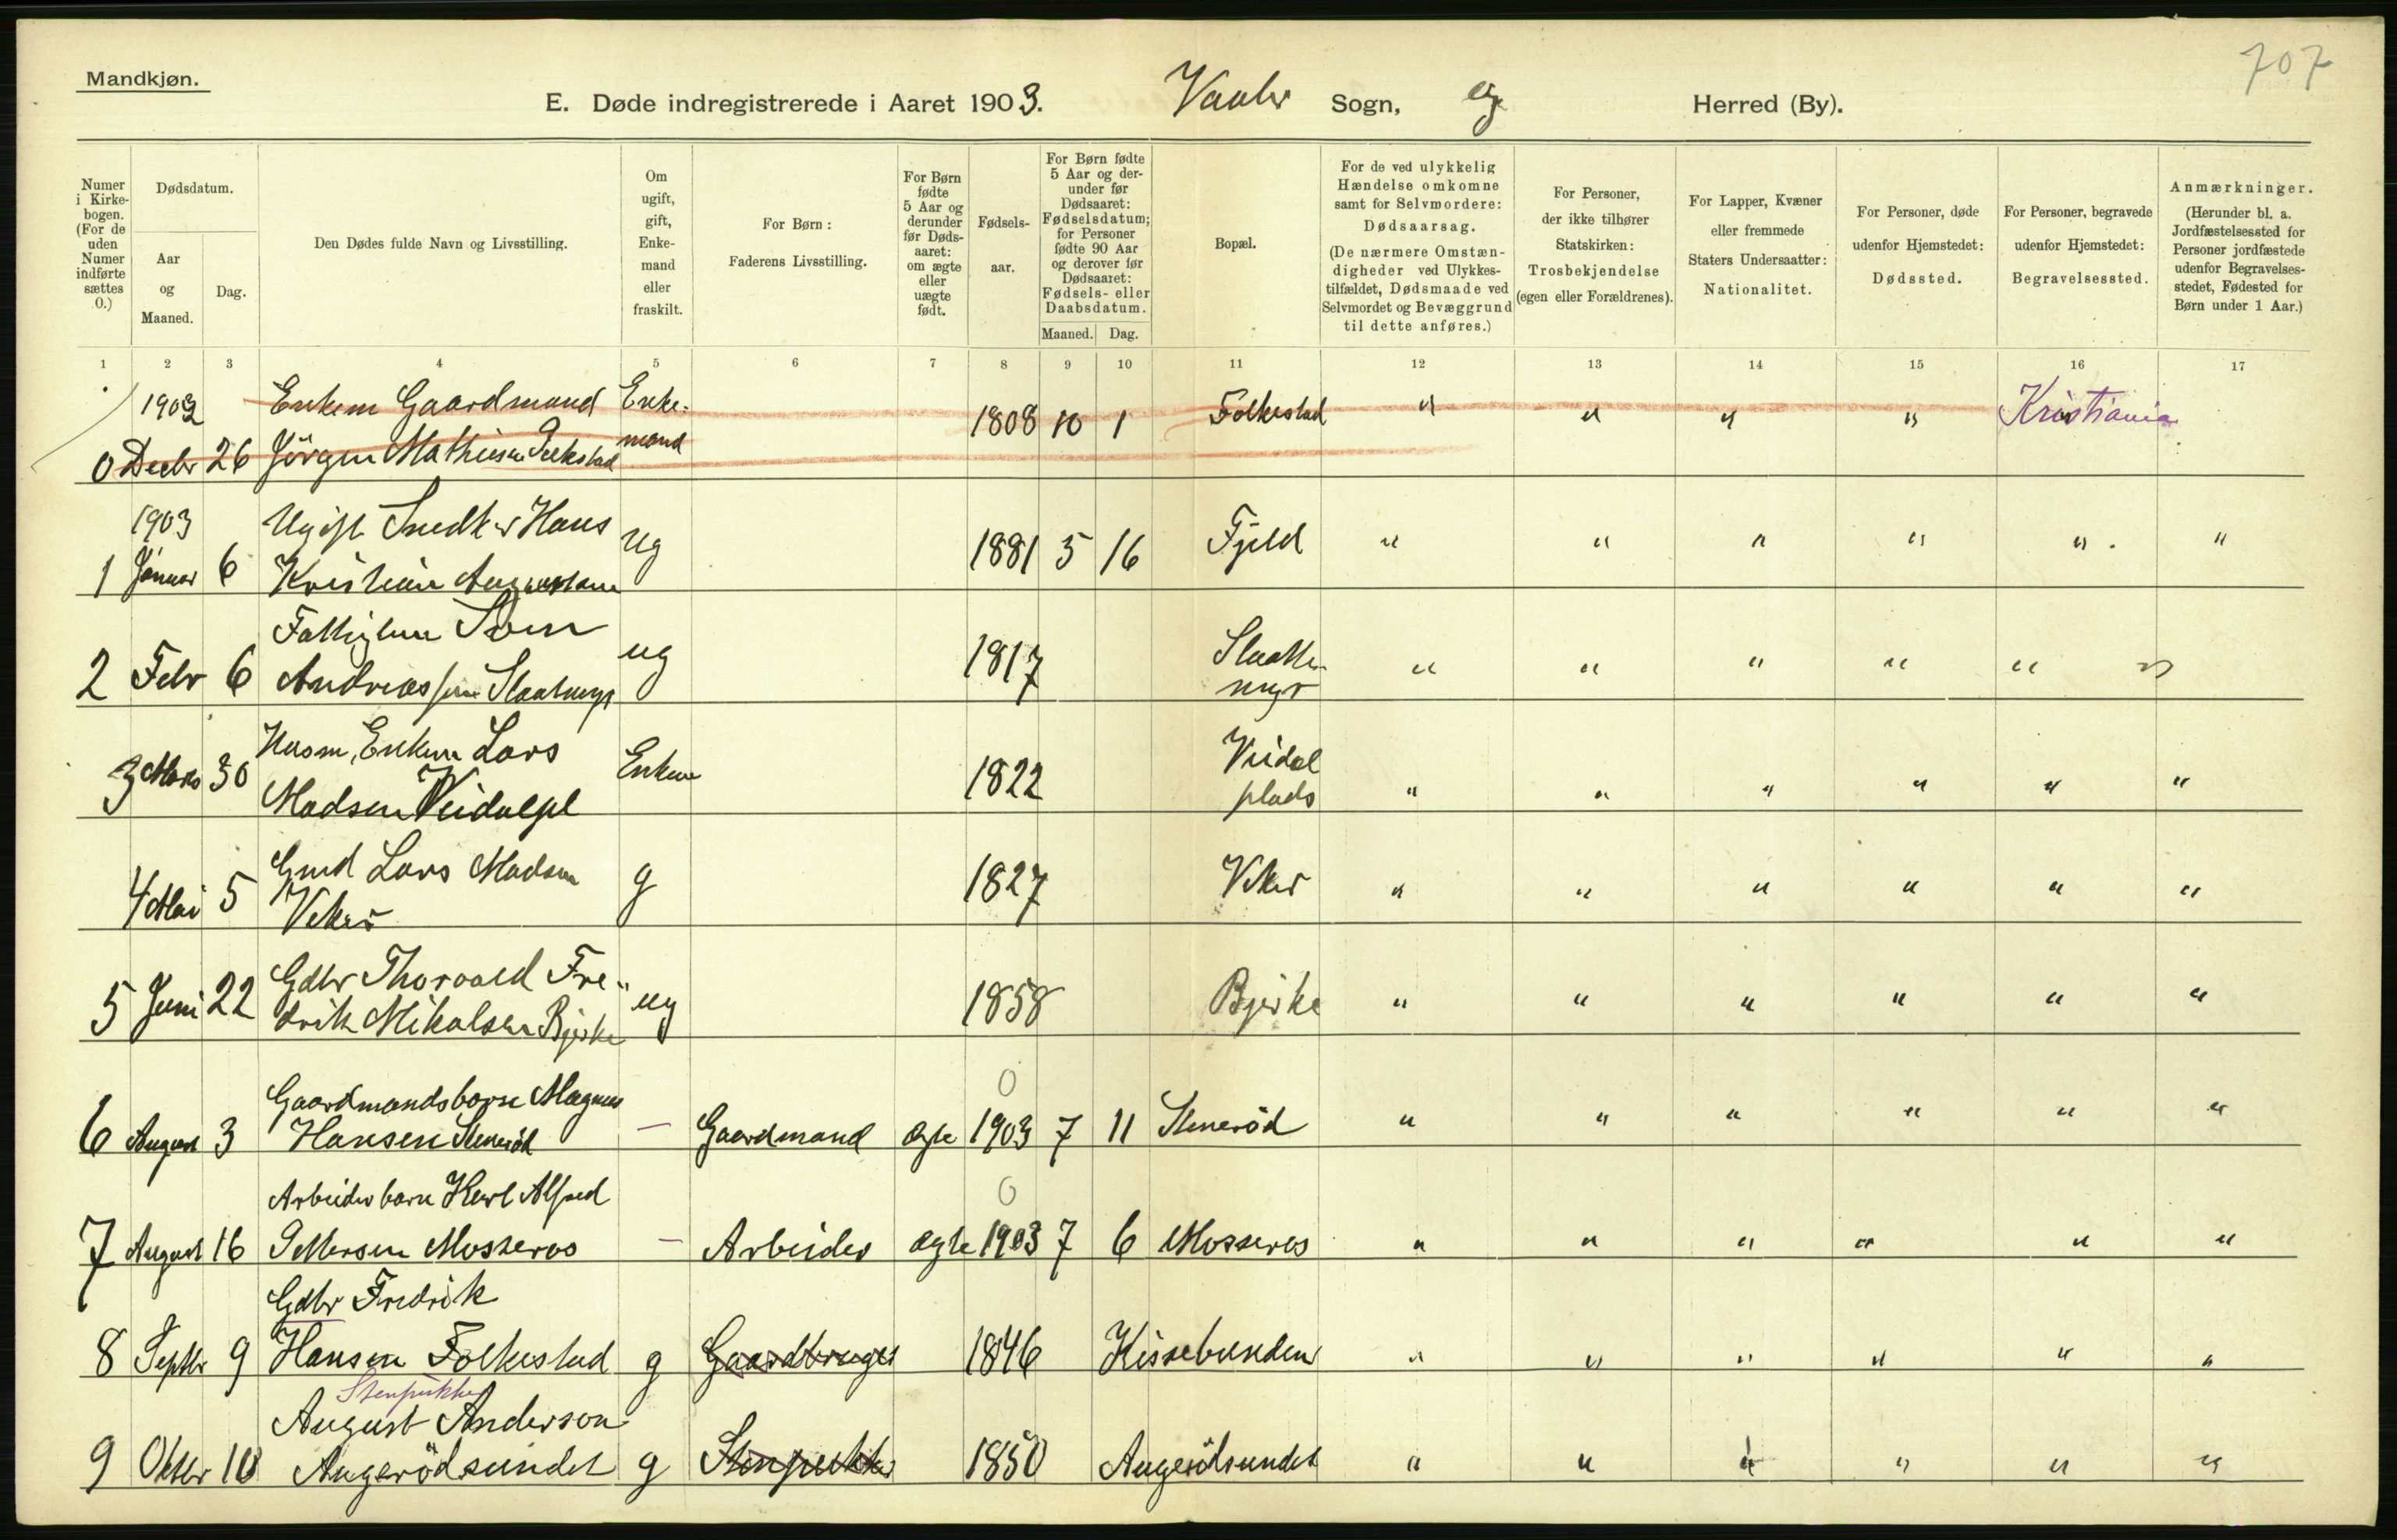 707
Mandkjøn.
E. Døde indregistrerede i Aaret 1903. Vaaler Sogn, og Herred (By).
Numer i Kirkebogen. (For de uden Numer indførte sættes 0.)
Dødsdatum.
Aar og Maaned.
Dag.
Den Dødes fulde Navn og Livsstilling.
Om ugift, gift, Enkemand eller fraskilt.
For Børn: Faderens Livsstilling.
For Børn fødte 5 Aar og derunder før Dødsaaret: om ægte eller uægte født.
Fødselsaar.
For Børn fødte 5 Aar og derunder før Dødsaaret: Fødselsdatum; for Personer fødte 90 Aar og derover før Dødsaaret: Fødsels- eller Daabsdatum.
Maaned. Dag.
Bopæl.
For de ved ulykkelig Hændelse omkomne samt for Selvmordere: Dødsaarsag. (De nærmere Omstændigheder ved Ulykkestilfældet, Dødsmaade ved Selvmordet og Bevæggrund til dette anføres.)
For Personer, der ikke tilhører Statskirken: Trosbekjendelse (egen eller Forældrenes).
For Lapper, Kvæner eller fremmede Staters Undersaatter: Nationalitet.
For Personer, døde udenfor Hjemstedet: Dødssted.
For Personer, begravede udenfor Hjemstedet: Begravelsessted.
Anmærkninger. (Herunder bl. a. Jordfæstelsessted for Personer jordfæstede udenfor Begravelsesstedet, Fødested for Børn under 1 Aar.)
1 2 3 4 5 6 7 8 9 10 11 12 13 14 15 16 17
1902 Enkem Gaardmand Enke-
0 Decbr 26 Jörgen Mathiesen mand 1808 10 1 Folkestad " " " " Kristiania
1903 Ugift Snedker Hans
1 Januar 6 Kristian ug 1881 5 16 Fjeld " " " " " "
Fattiglem Sven
2 Febr 6 Andreassen Slaatmyr ug 1817 Slaattemyr " " " " " "
Husm, Enkem Lars
3 Mars 30 Madsen Veidalpl Enkem 1822 Veidal plads " " " " " "
Gmd Lars Madsen
4 Mai 5 Veker g 1827 Veker " " " " " "
Gdbr Thorvald Fre-
5 Juni 22 drik Mikalsen Bjerke ug 1858 Bjerke " " " " " "
Gaardmandsbarn Magnus 0
6 August 3 Hansen Stenerød — Gaardmand ægte 1903 7 11 Stenerød " " " " " "
Arbeiderbarn Karl Alfred 0
7 August 16 Pettersen Mosseros — Arbeider ægte 1903 7 6 Mosseros " " " " " "
Gdbr Fredrik
8 Septbr 9 Hansen Folkestad g Gaardbruger 1846 Kissebunden " " " " " "
Stenpukker
August Anderson
9 Oktbr 10 Augerödsundet g Stenpukker 1850 Augerödsundet " " " " " "